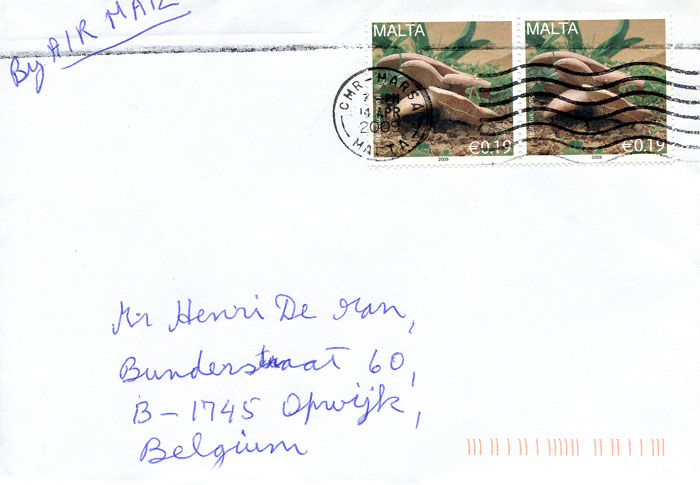 By AIR MAIL
MALTA
MALTA
CMR-MARSA
7 - PM
14 APR
2009
MALTA
€0.19
€0.19
2009
2009
Mr Henri De Man,
Bunderstraat 60,
B-1745 Opwijk,
Belgium